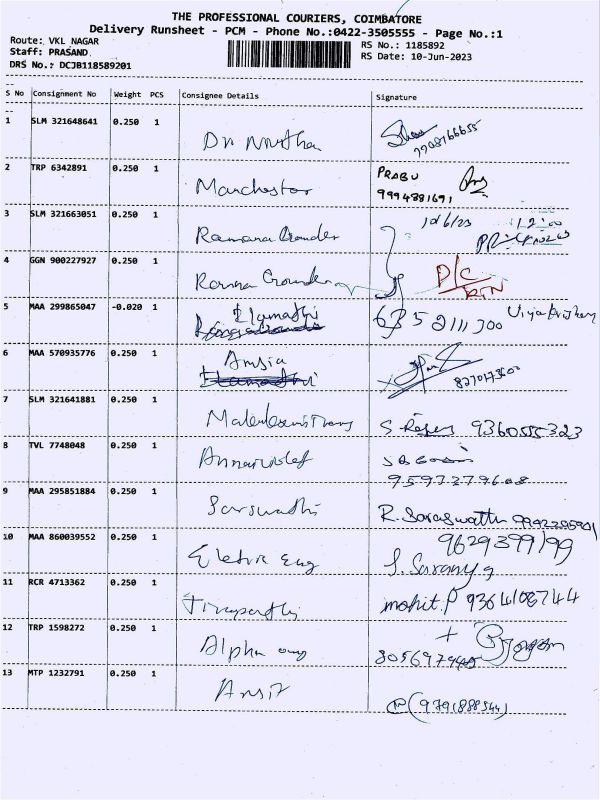 THE PROFESSIONAL COURIERS, COIMBATORE
Delivery Runsheet - PCM - Phone No.:0422-3505555 - Page No.:1
Route: VKL NAGAR
RS No.: 1185892
Staff: PRASAND.
RS Date: 10-Jun-2023
DRS No.: DCJB118589201
S No Consignment No Weight PCS Consignee Details Signature
1 SLM 321648641 0.250 1
7908166655
2 TRP 6342891 0.250 1 Manchester PRABU
9994881691
3 SLM 321663051 0.250 1 Ramana Grounder 10/6/23 12:00
4 GGN 900227927 0.250 1 Grounder D/C
RTN
5 MAA 299865047 -0.020 1 Elamathi
6 MAA 570935776 0.250 1 Amsia
7 SLM 321641881 0.250 1 9360555323
8 TVL 7748048 0.250 1
9597279608
9 MAA 295851884 0.250 1 Sarswathi R. Saraswathi
10 MAA 860039552 0.250 1 Eletric Eng 9629399199
S. Saranya
11 RCR 4713362 0.250 1 Tirupathi mohit.P 9364108744
12 TRP 1598272 0.250 1 Alpha eng
13 MTP 1232791 0.250 1 (9791888544)